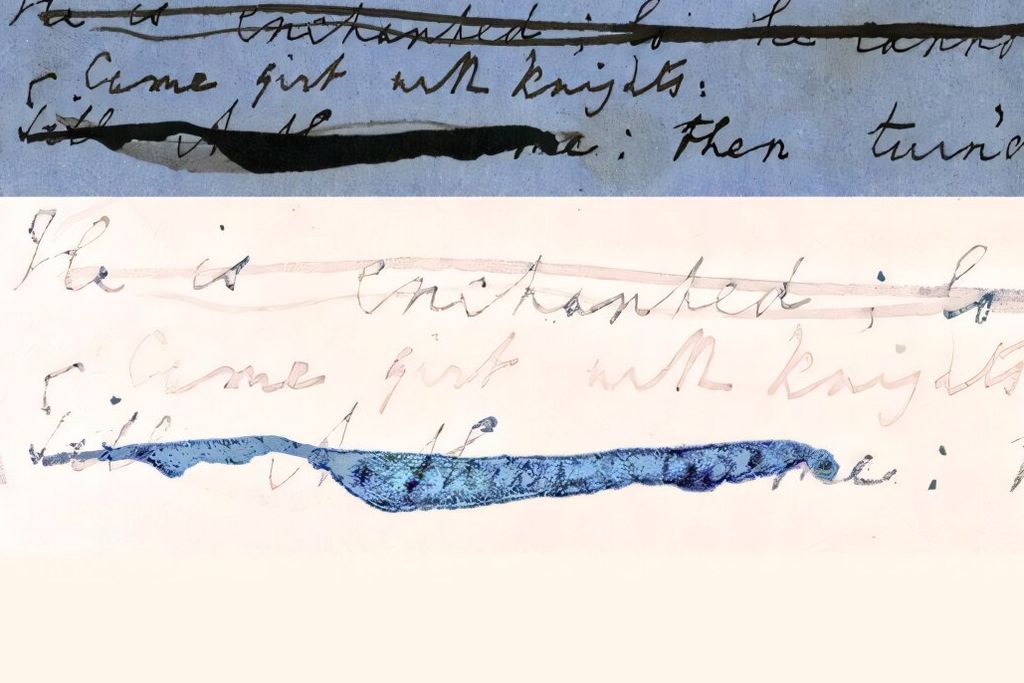 He is enchanted; lo he canno
Came girt with knights:
me: then turn'd
He is enchanted; lo
Came girt with knights
me: